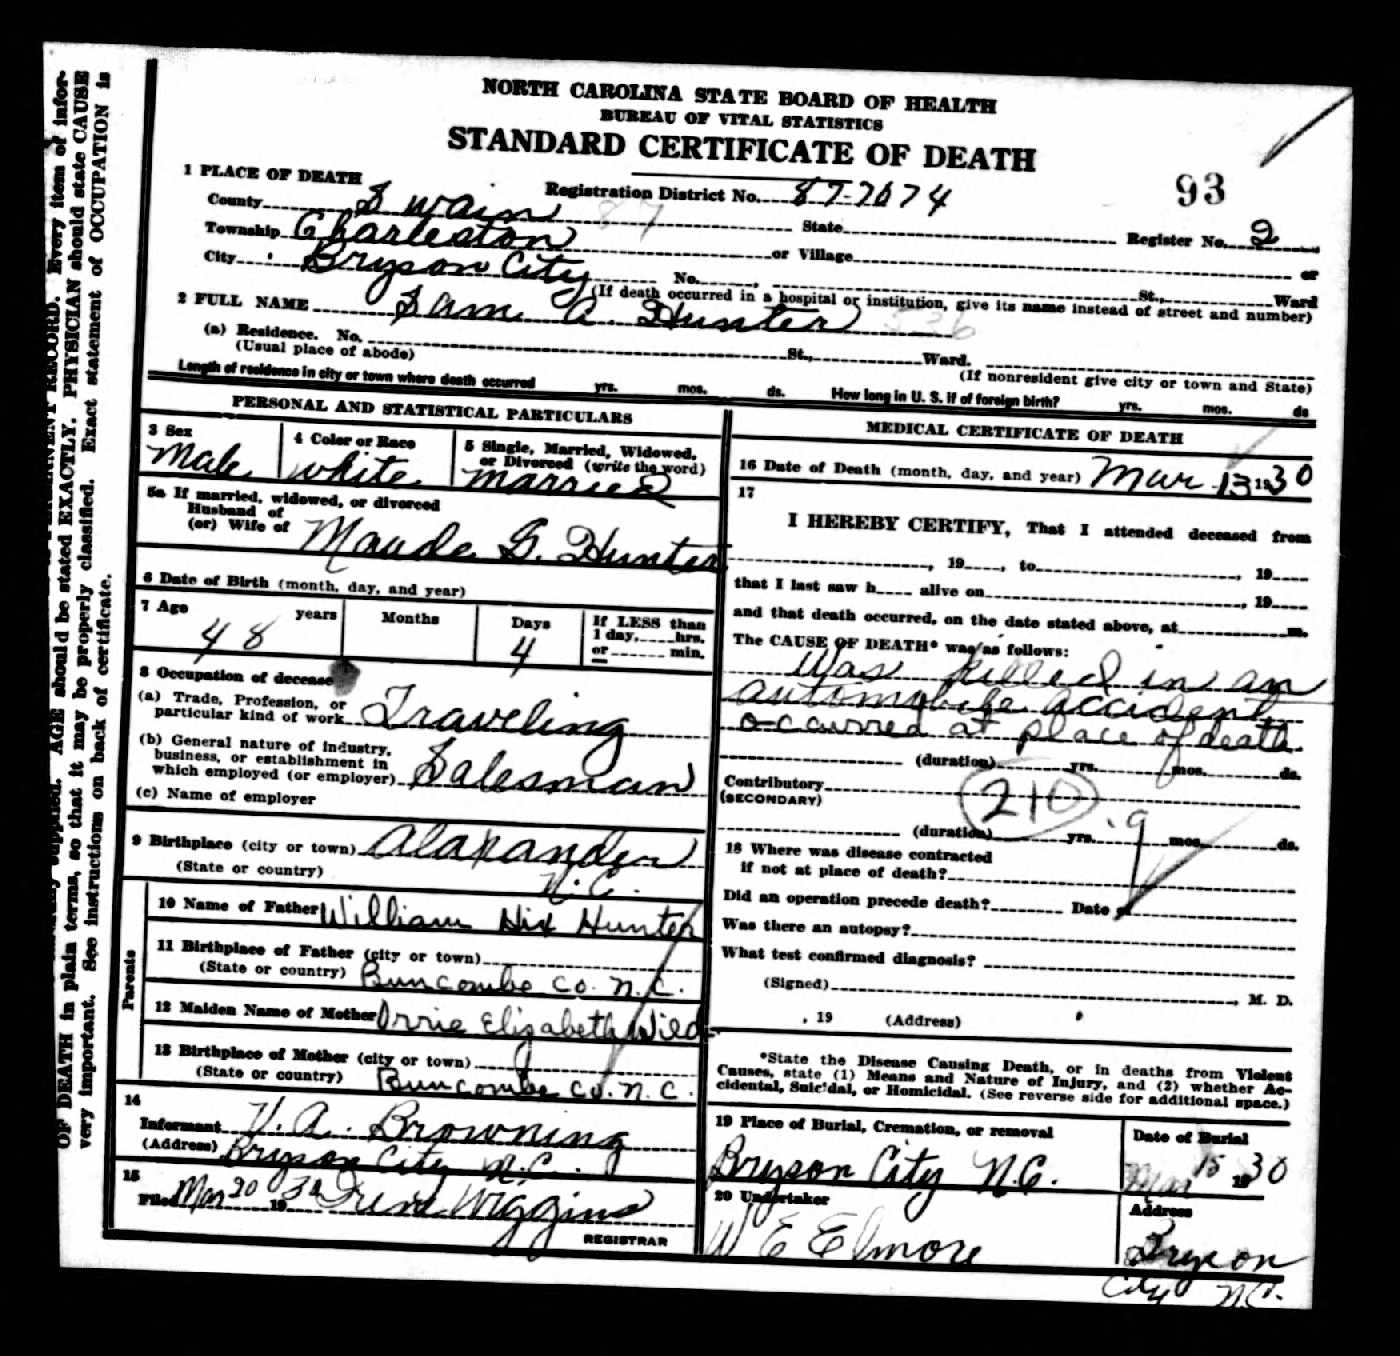 NORTH CAROLINA STATE BOARD OF HEALTH
BUREAU OF VITAL STATISTICS
STANDARD CERTIFICATE OF DEATH
93
1 PLACE OF DEATH
Registration District No. 87-7074
County Swain 87 State Register No. 2
Township Charleston or Village or
City Bryson City No. St., Ward
(If death occurred in a hospital or institution, give its name instead of street and number)
2 FULL NAME Sam A. Hunter 536
(a) Residence. No. St., Ward.
(Usual place of abode)
(If nonresident give city or town and State)
Length of residence in city or town where death occurred yrs. mos. ds. How long in U. S. if of foreign birth? yrs. mos. ds
PERSONAL AND STATISTICAL PARTICULARS
3 Sex
Male
4 Color or Race
white
5 Single, Married, Widowed,
or Divorced (write the word)
married
5a If married, widowed, or divorced
Husband of
(or) Wife of Maude G. Hunter
6 Date of Birth (month, day, and year)
7 Age
48 years
Months
Days
4
If LESS than
1 day, hrs.
or min.
8 Occupation of decease
(a) Trade, Profession, or
particular kind of work Traveling
(b) General nature of industry,
business, or establishment in
which employed (or employer) Salesman
(c) Name of employer
9 Birthplace (city or town) Alaxander
(State or country) N.C.
Parents
10 Name of Father William Hix Hunter
11 Birthplace of Father (city or town)
(State or country) Buncombe Co. N.C.
12 Maiden Name of Mother Orrie Elizabeth Wild
13 Birthplace of Mother (city or town)
(State or country) Buncombe Co. N.C.
14
Informant V. A. Browning
(Address) Bryson City N.C.
15
Filed Mar 20 19 30 Irene Wiggins
REGISTRAR
MEDICAL CERTIFICATE OF DEATH
16 Date of Death (month, day, and year) Mar 13 1930
17
I HEREBY CERTIFY, That I attended deceased from
, 19 , to , 19
that I last saw h alive on , 19
and that death occurred, on the date stated above, at m.
The CAUSE OF DEATH* was as follows:
Was killed in an
automobile accident
occurred at place of death
(duration) yrs. mos. ds.
Contributory
(SECONDARY)
210.9
(duration) yrs. mos. ds.
18 Where was disease contracted
if not at place of death?
Did an operation precede death? Date of
Was there an autopsy?
What test confirmed diagnosis?
(Signed) , M. D.
, 19 (Address)
*State the Disease Causing Death, or in deaths from Violent
Causes, state (1) Means and Nature of Injury, and (2) whether Ac-
cidental, Suicidal, or Homicidal. (See reverse side for additional space.)
19 Place of Burial, Cremation, or removal
Bryson City N.C.
Date of Burial
Mar 15 1930
20 Undertaker
W E Elmore
Address
Bryson
City N.C.
PERMANENT RECORD. Every item of infor-
supplied. AGE should be stated EXACTLY. PHYSICIAN should state CAUSE
OF DEATH in plain terms, so that it may be properly classified. Exact statement of OCCUPATION is
very important. See instructions on back of certificate.